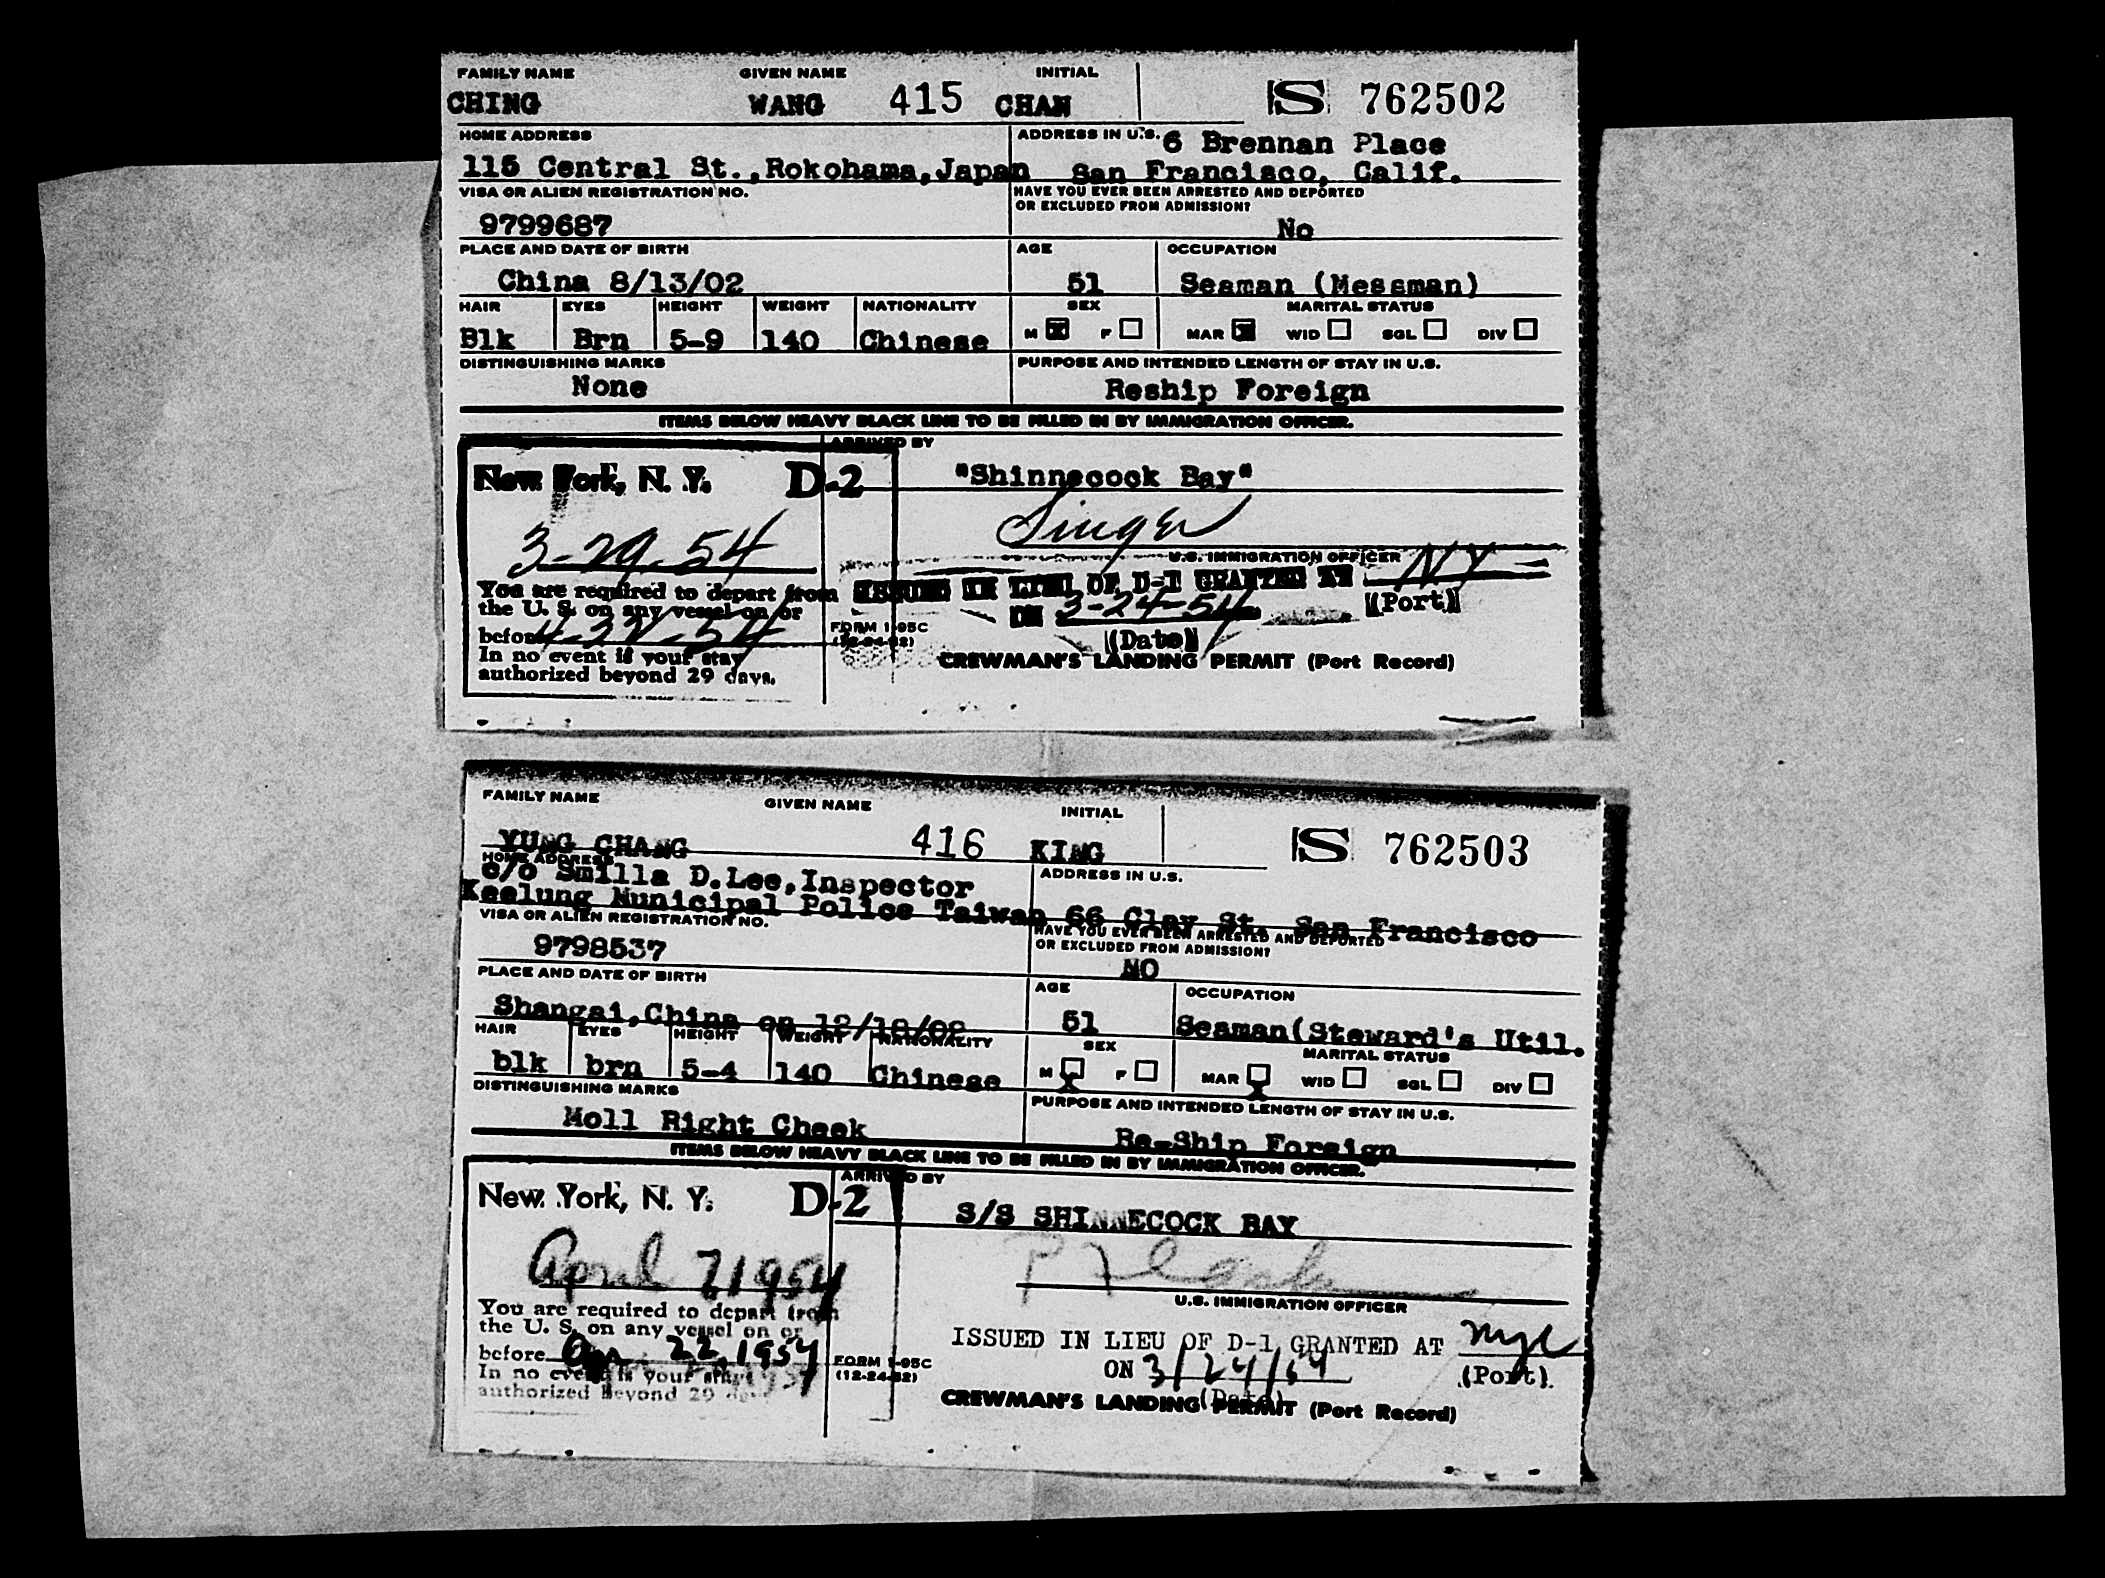 FAMILY NAME GIVEN NAME INITIAL
CHING WANG 415 CHAN S 762502
HOME ADDRESS ADDRESS IN U.S. 6 Brennan Place
115 Central St.,Rokohama,Japan San Francisco, Calif.
VISA OR ALIEN REGISTRATION NO. HAVE YOU EVER BEEN ARRESTED AND DEPORTED
OR EXCLUDED FROM ADMISSION?
9799687 No
PLACE AND DATE OF BIRTH AGE OCCUPATION
China 8/13/02 51 Seaman (Messman)
HAIR EYES HEIGHT WEIGHT NATIONALITY SEX MARITAL STATUS
Blk Brn 5-9 140 Chinese M X F MAR X WID SGL DIV
DISTINGUISHING MARKS PURPOSE AND INTENDED LENGTH OF STAY IN U.S.
None Reship Foreign
ITEMS BELOW HEAVY BLACK LINE TO BE FILLED IN BY IMMIGRATION OFFICER.
ARRIVED BY
New York, N. Y. D-2 "Shinnecock Bay"
Singer
3-29-54
U.S. IMMIGRATION OFFICER NY
You are required to depart from ISSUED IN LIEU OF D-1 GRANTED AT
the U. S. on any vessel on or ON 3-24-54 (Port)
before FORM I-95C
(12-24-52) (Date)
In no event is your stay CREWMAN'S LANDING PERMIT (Port Record)
authorized beyond 29 days.
FAMILY NAME GIVEN NAME INITIAL
YUNG CHANG 416 KING S 762503
HOME ADDRESS ADDRESS IN U.S.
c/o Smilla D.Lee,Inspector
Keelung Municipal Police Taiwan 66 Clay St. San Francisco
VISA OR ALIEN REGISTRATION NO. HAVE YOU EVER BEEN ARRESTED AND DEPORTED
OR EXCLUDED FROM ADMISSION?
9798537 NO
PLACE AND DATE OF BIRTH AGE OCCUPATION
Shangai,China on 12/18/02 51 Seaman(Steward's Util.
HAIR EYES HEIGHT WEIGHT NATIONALITY SEX MARITAL STATUS
blk brn 5-4 140 Chinese M X F MAR X WID SGL DIV
DISTINGUISHING MARKS PURPOSE AND INTENDED LENGTH OF STAY IN U.S.
Moll Right Cheek Re-Ship Foreign
ITEMS BELOW HEAVY BLACK LINE TO BE FILLED IN BY IMMIGRATION OFFICER.
ARRIVED BY
New York, N. Y. D-2 S/S SHINNECOCK BAY
April 7 1954
U.S. IMMIGRATION OFFICER
You are required to depart from
the U. S. on any vessel on or ISSUED IN LIEU OF D-1 GRANTED AT nyc
before Apr. 22, 1954 FORM I-95C ON 3/24/54 (Port).
In no event is your stay (12-24-52) (Date)
authorized beyond 29 days CREWMAN'S LANDING PERMIT (Port Record)